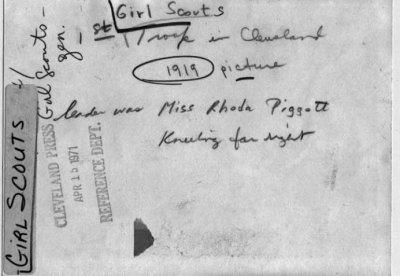 Girl Scouts
1st Troop in Cleveland
1919 picture
leader was Miss Rhoda Piggott
Kneeling far right
GIRL SCOUTS -
Girl Scouts -
gen.
CLEVELAND PRESS
APR 15 1971
REFERENCE DEPT.